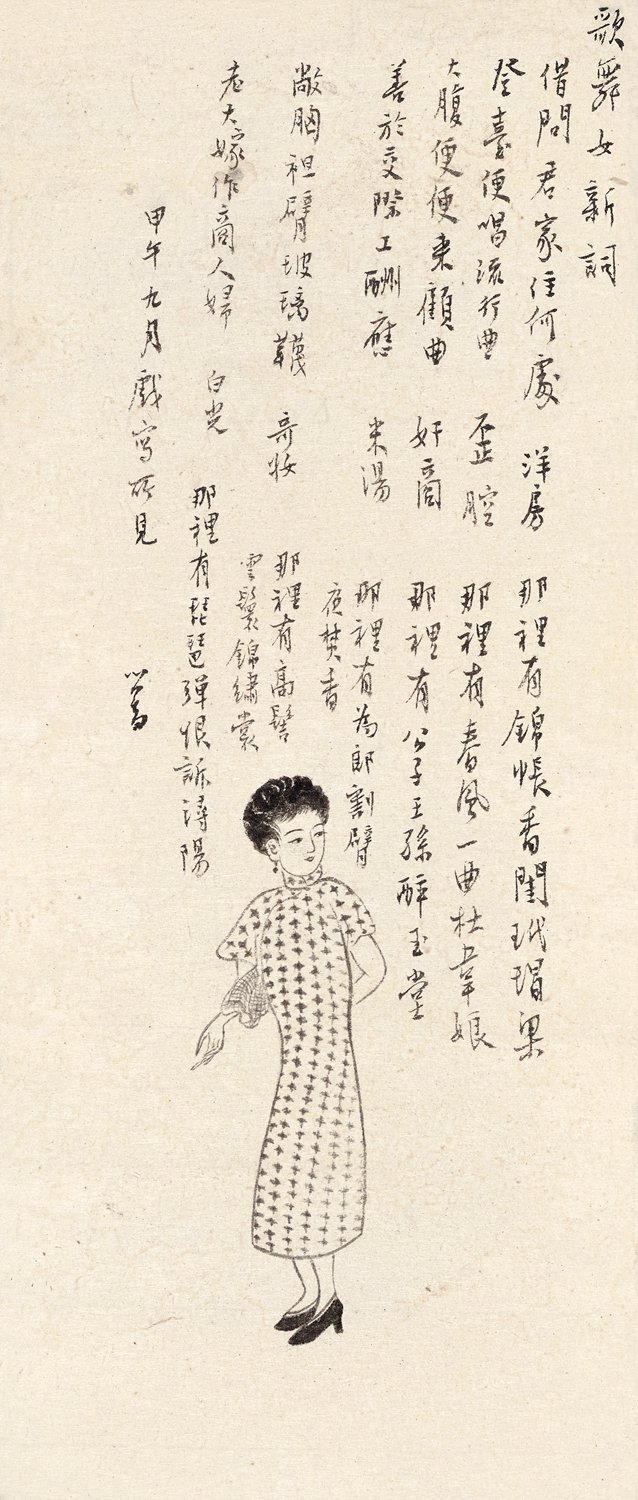 歌舞女新詞
借問君家住何處 洋房 那裡有錦帳香閨玳瑁梁
登臺便唱流行曲 歪腔 那裡有春風一曲杜韋娘
大腹便便來顧曲 奸商 那裡有公子王孫醉玉堂
善於交際工酬應 米湯 那裡有為郎割臂
夜焚香
敞胸袒臂玻璃韈 奇妝 那裡有高髻
雲鬟錦繡裳
老大嫁作商人婦 白光 那裡有琵琶彈恨訴潯陽
甲午九月戲寫所見
心畬